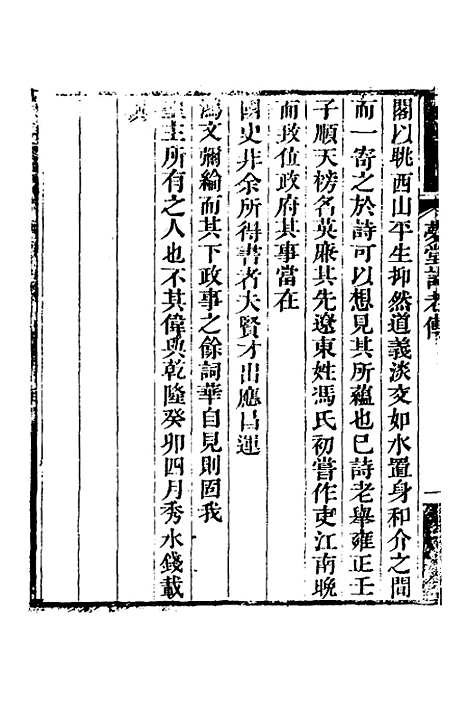 閣以眺西山平生抑然道義淡交如水置身和介之間
而一寄之於詩可以想見其所蘊也已詩老舉雍正壬
子順天榜名英廉其先遼東姓馮氏初嘗作吏江南晚
而政位政府其事當在
國史非余所得書者夫賢才出應昌運
鴻文彌綸而其下政事之餘詞華自見則固我
聖主所有之人也不其偉與乾隆癸卯四月秀水錢載
夢堂詩老傳
一